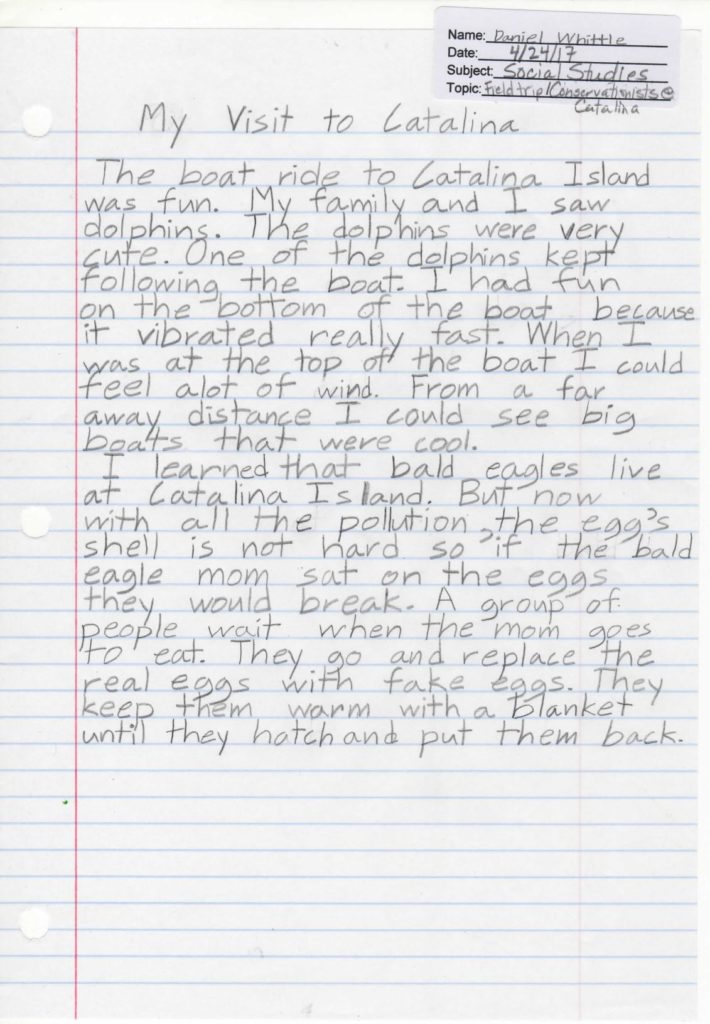 Name: Daniel Whittle
Date: 4/24/17
Subject: Social Studies
Topic: Fieldtrip/Conservationists @
Catalina
My Visit to Catalina
The boat ride to Catalina Island
was fun. My family and I saw
dolphins. The dolphins were very
cute. One of the dolphins kept
following the boat. I had fun
on the bottom of the boat because
it vibrated really fast. When I
was at the top of the boat I could
feel alot of wind. From a far
away distance I could see big
boats that were cool.
I learned that bald eagles live
at Catalina Island. But now
with all the pollution, the egg's
shell is not hard so if the bald
eagle mom sat on the eggs
they would break. A group of
people wait when the mom goes
to eat. They go and replace the
real eggs with fake eggs. They
keep them warm with a blanket
until they hatch and put them back.